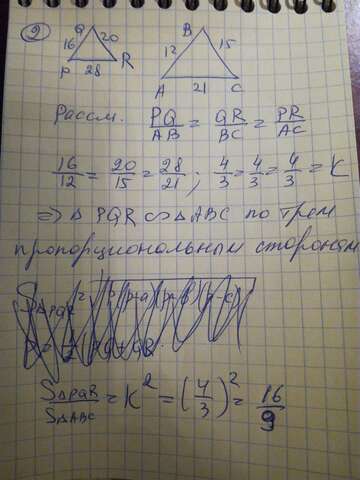 2
Q
16 20
P 28 R
B
12 15
A 21 C
Рассм. PQ/AB = QR/BC = PR/AC
16/12 = 20/15 = 28/21 ; 4/3 = 4/3 = 4/3 = K
⇒ Δ PQR ∽ Δ ABC по трем
пропорциональным сторонам
SΔPQR/SΔABC = K² = (4/3)² = 16/9